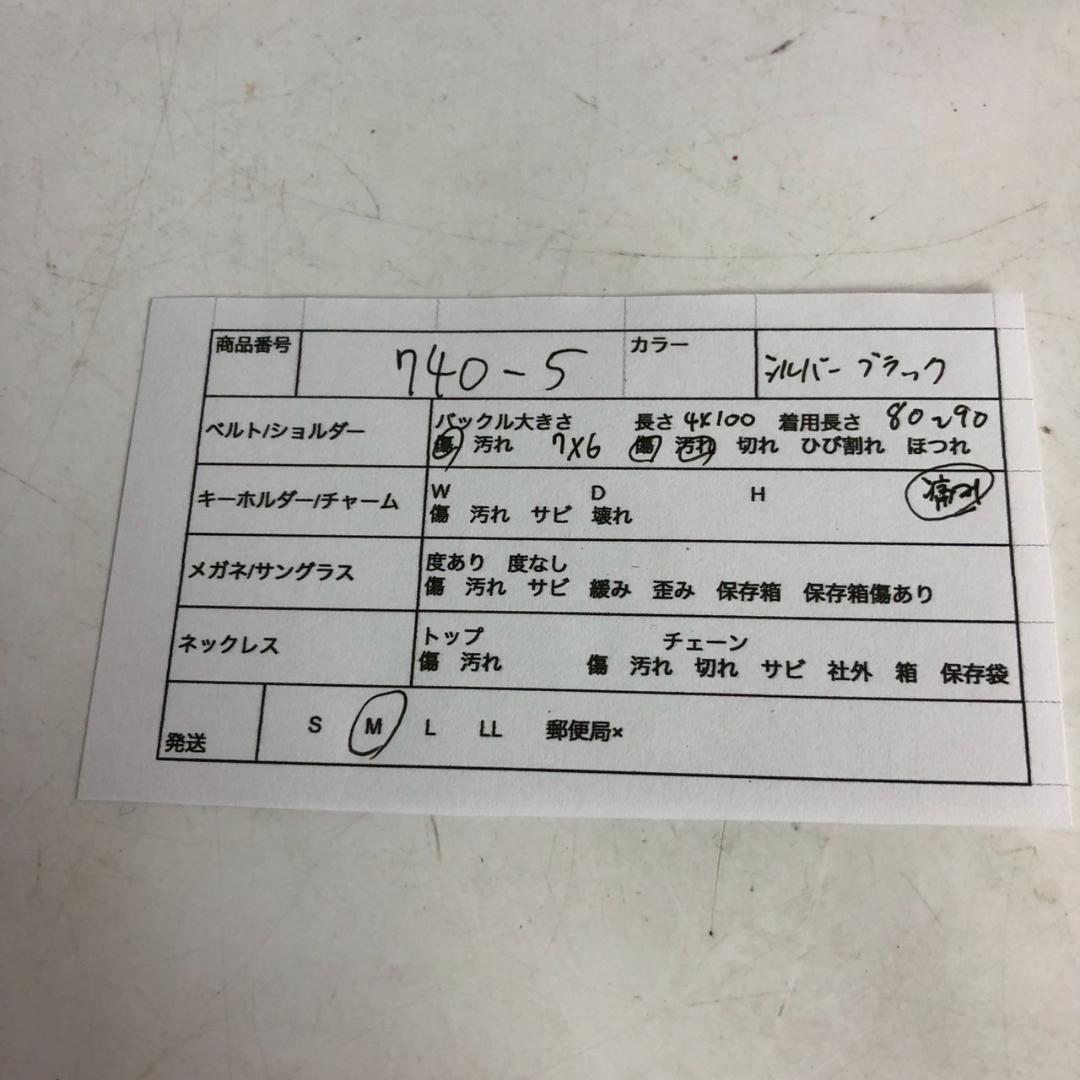 商品番号 740-5 カラー シルバー ブラック
ベルト/ショルダー
バックル大きさ 長さ 4X100 着用長さ 80~90
傷 汚れ 7X6 傷 汚れ 切れ ひび割れ ほつれ
キーホルダー/チャーム
W D H
傷 汚れ サビ 壊れ
メガネ/サングラス
度あり 度なし
傷 汚れ サビ 緩み 歪み 保存箱 保存箱傷あり
ネックレス
トップ チェーン
傷 汚れ 傷 汚れ 切れ サビ 社外 箱 保存袋
発送 S M L LL 郵便局×